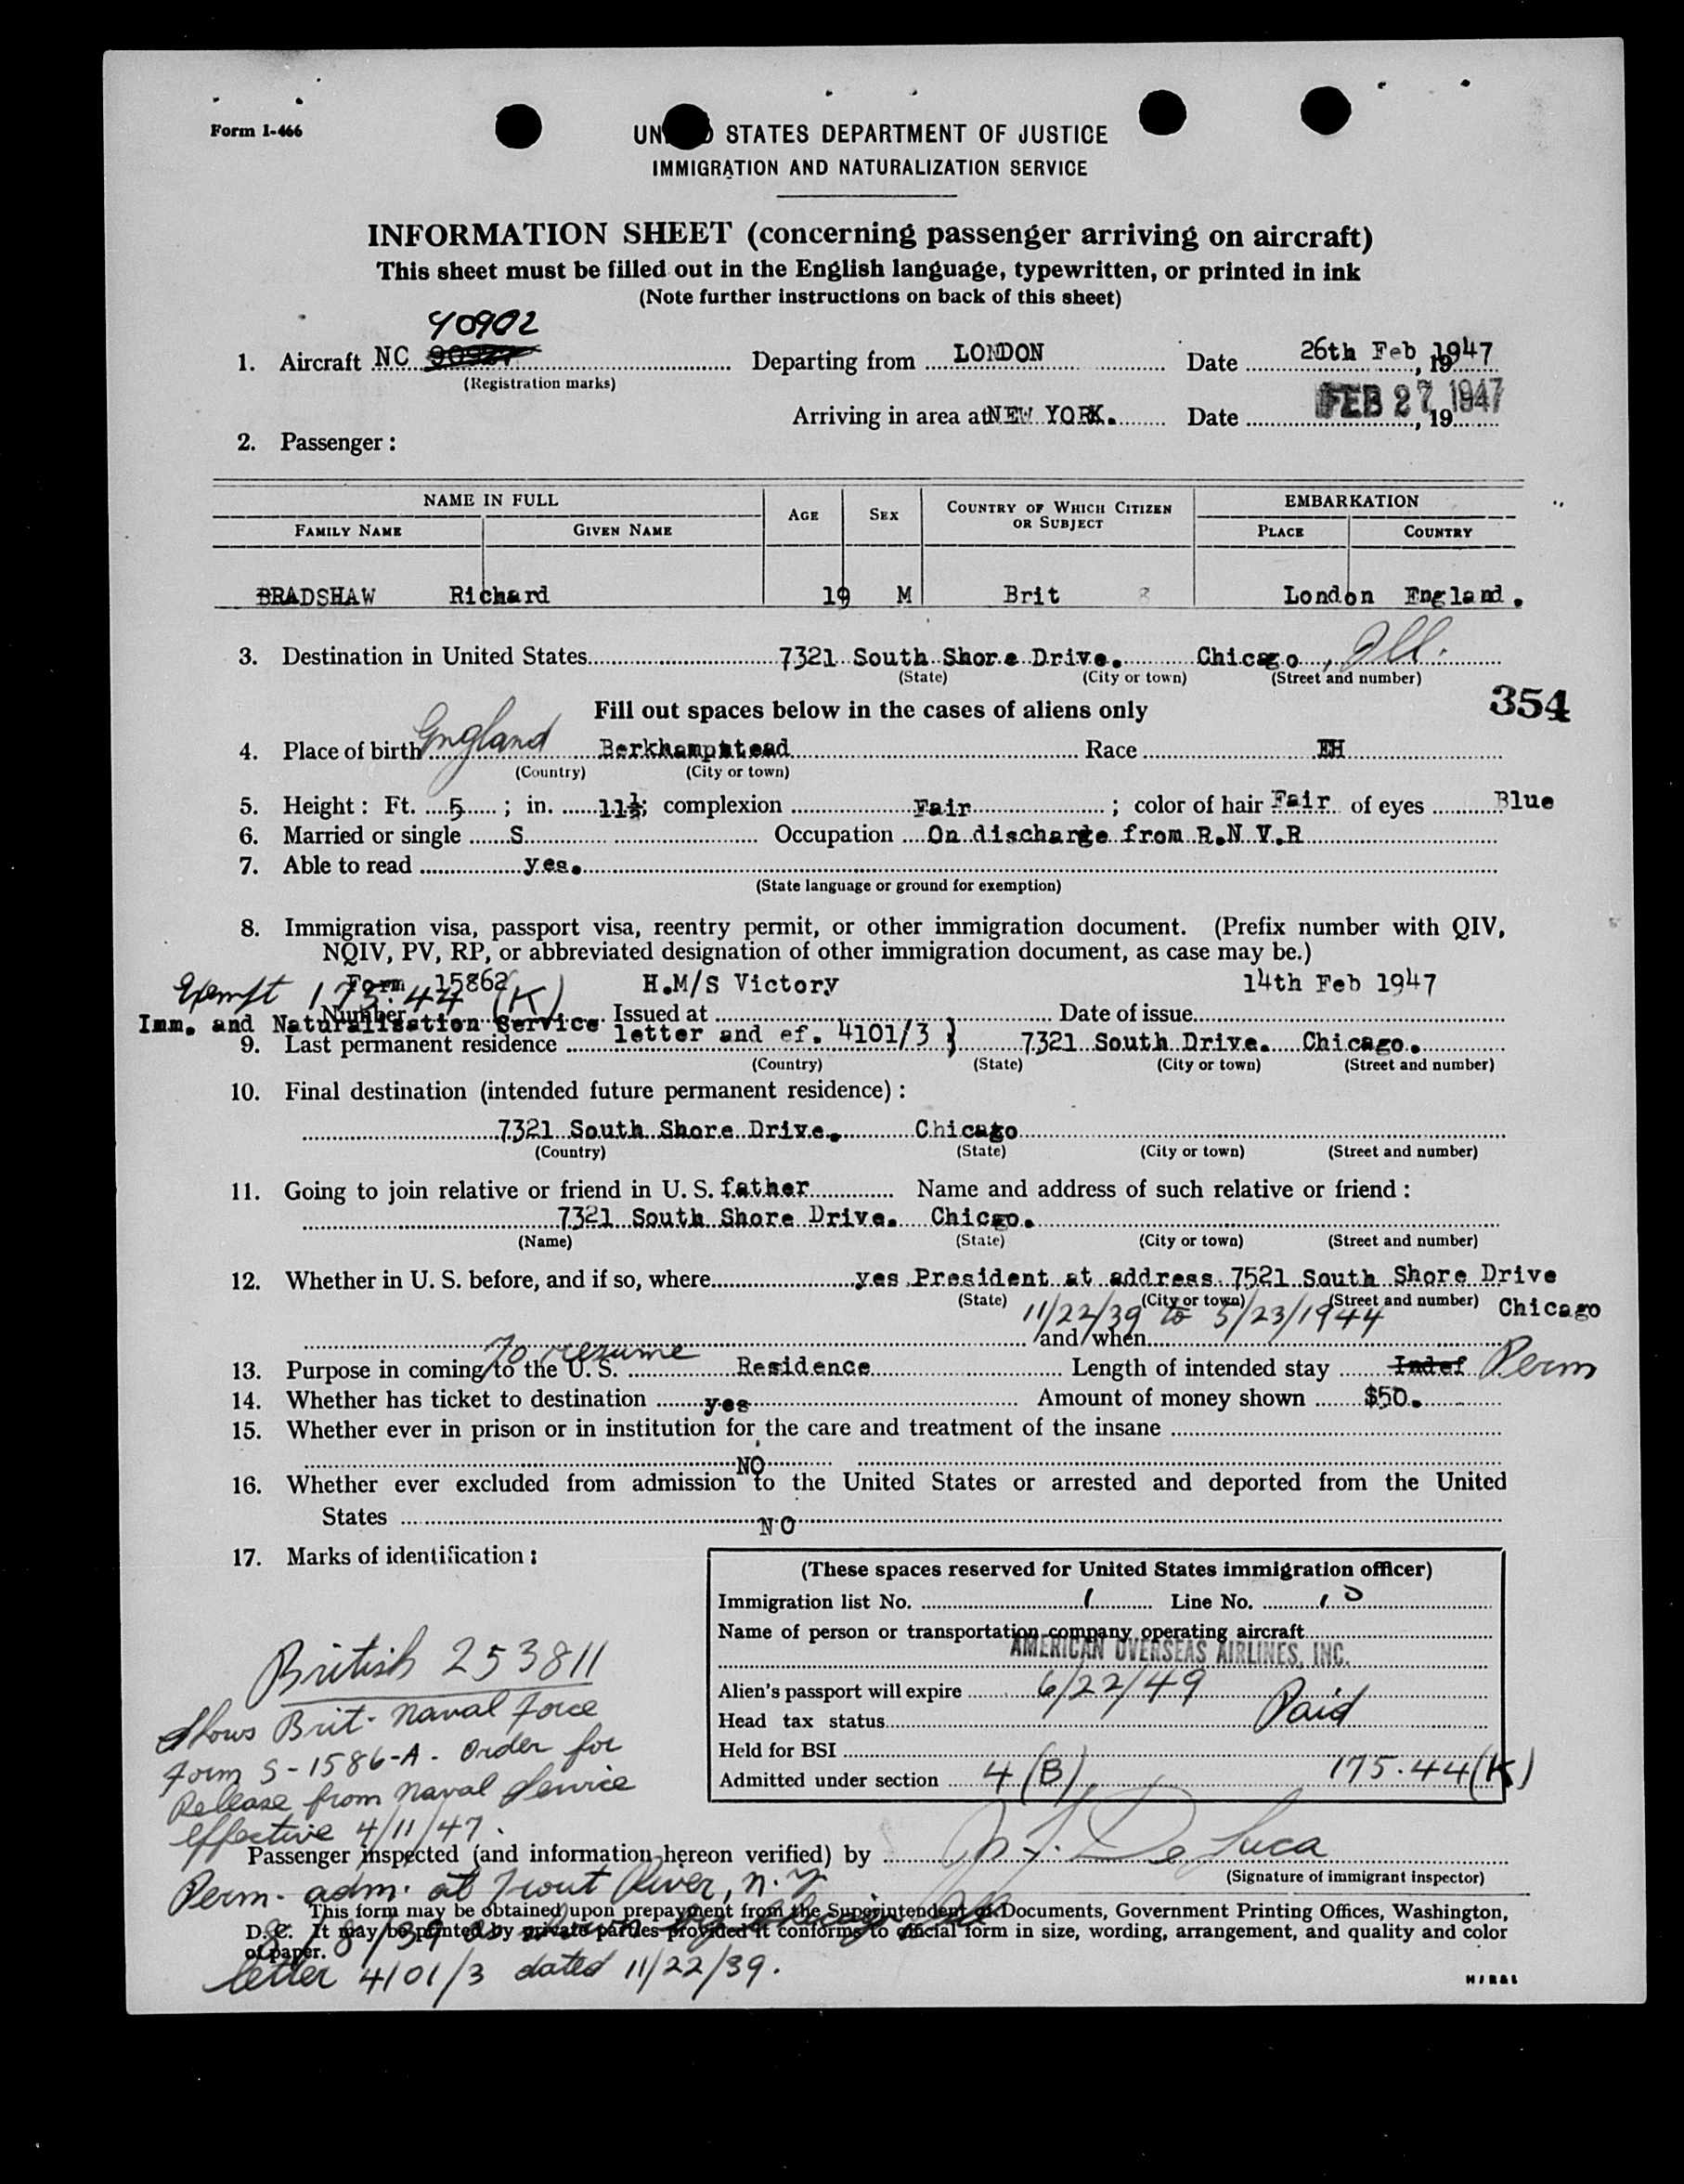 Form I-466
UN D STATES DEPARTMENT OF JUSTICE
IMMIGRATION AND NATURALIZATION SERVICE
INFORMATION SHEET (concerning passenger arriving on aircraft)
This sheet must be filled out in the English language, typewritten, or printed in ink
(Note further instructions on back of this sheet)
40902
1. Aircraft NC Departing from LONDON Date 26th Feb, 1947
(Registration marks)
Arriving in area at NEW YORK. Date FEB 27 1947, 19
2. Passenger:
NAME IN FULL AGE SEX COUNTRY OF WHICH CITIZEN OR SUBJECT EMBARKATION
FAMILY NAME GIVEN NAME PLACE COUNTRY
BRADSHAW Richard 19 M Brit London England.
3. Destination in United States 7321 South Shore Drive. Chicago, Ill.
(State) (City or town) (Street and number)
354
Fill out spaces below in the cases of aliens only
4. Place of birth England Berkhampstead Race EH
(Country) (City or town)
5. Height: Ft. 5; in. 11½; complexion Fair; color of hair Fair of eyes Blue
6. Married or single S Occupation On discharge from R.N.V.R
7. Able to read yes.
(State language or ground for exemption)
8. Immigration visa, passport visa, reentry permit, or other immigration document. (Prefix number with QIV,
NQIV, PV, RP, or abbreviated designation of other immigration document, as case may be.)
Form 15862 H.M/S Victory 14th Feb 1947
Exempt 175.44 (K)
Number Issued at Date of issue
Imm. and Naturalisation Service letter and ef. 4101/3 }
9. Last permanent residence 7321 South Drive. Chicago.
(Country) (State) (City or town) (Street and number)
10. Final destination (intended future permanent residence):
7321 South Shore Drive. Chicago
(Country) (State) (City or town) (Street and number)
11. Going to join relative or friend in U. S. father Name and address of such relative or friend:
7321 South Shore Drive. Chicgo.
(Name) (State) (City or town) (Street and number)
12. Whether in U. S. before, and if so, where yes President at address 7521 South Shore Drive
(State) (City or town) (Street and number) Chicago
11/22/39 to 5/23/1944
and when
13. Purpose in coming to the U. S. To resume Residence Length of intended stay Indef Perm
14. Whether has ticket to destination yes Amount of money shown $50.
15. Whether ever in prison or in institution for the care and treatment of the insane
NO
16. Whether ever excluded from admission to the United States or arrested and deported from the United
States NO
17. Marks of identification:
(These spaces reserved for United States immigration officer)
Immigration list No. 1 Line No. 10
Name of person or transportation company operating aircraft
AMERICAN OVERSEAS AIRLINES, INC.
Alien's passport will expire 6/22/49
Head tax status Paid
Held for BSI
Admitted under section 4 (B) 175.44(K)
British 253811
Shows Brit. Naval Force
Form S-1586-A - Order for
Release from Naval Service
effective 4/11/47.
Passenger inspected (and information hereon verified) by De Luca
(Signature of immigrant inspector)
Perm. adm. at Trout River, N.Y
8/8/39 as shown by Chicago Ill
This form may be obtained upon prepayment from the Superintendent of Documents, Government Printing Offices, Washington,
D. C. It may be printed by private parties provided it conforms to official form in size, wording, arrangement, and quality and color
of paper.
letter 4101/3 dated 11/22/39.